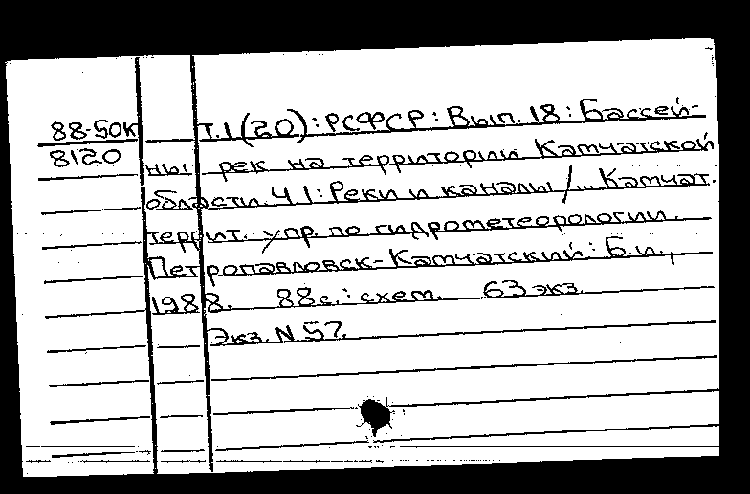 88-50К Т.1(20): РСФСР: Вып. 18: Бассей-
8120 ны рек на территории Камчатской
области. Ч 1: Реки и каналы / ... Камчат.
террит. упр. по гидрометеорологии.
Петропавловск-Камчатский: Б.и.,
1988. 88с.: схем. 63 экз.
Экз. N 57.